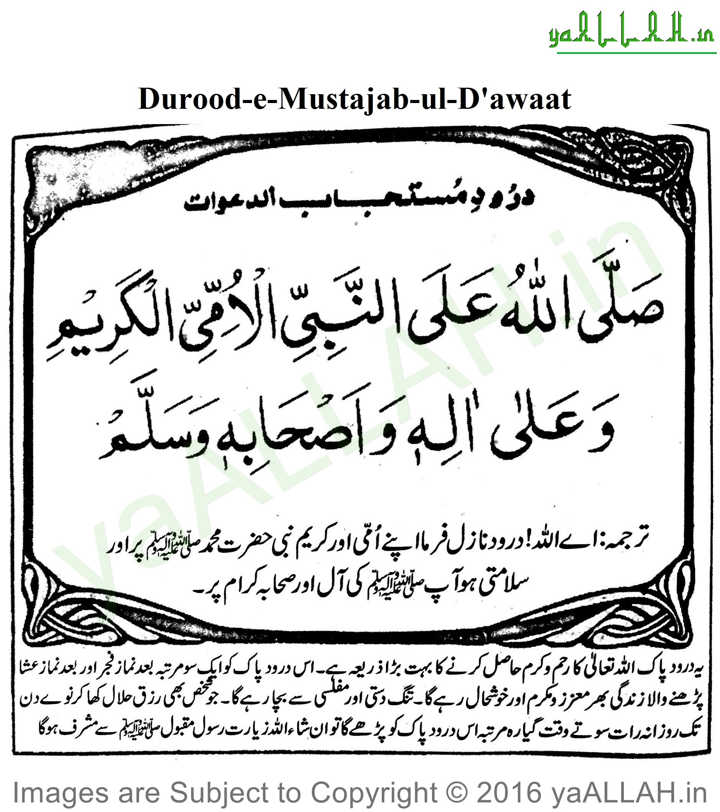 yaALLAH.in
Durood-e-Mustajab-ul-D'awaat
درُودِ مُستجاب الدعوات
صَلَّى اللهُ عَلَى النَّبِيِّ الْاُمِّيِّ الْكَرِيْمِ
وَعَلٰى اٰلِهٖ وَاَصْحَابِهٖ وَسَلَّمْ
ترجمہ: اے اللہ! درود نازل فرما اپنے اُمّی اور کریم نبی حضرت محمد ﷺ پر اور
سلامتی ہو آپ ﷺ کی آل اور صحابہ کرام پر۔
یہ درود پاک اللہ تعالیٰ کا رحم و کرم حاصل کرنے کا بہت بڑا ذریعہ ہے۔ اس درود پاک کو ایک سو مرتبہ بعد نماز فجر اور بعد نماز عشا
پڑھنے والا زندگی بھر معزز و مکرم اور خوشحال رہے گا۔ تنگ دستی اور مفلسی سے بچا رہے گا۔ جو شخص بھی رزق حلال کھا کر نوے دن
تک روزانہ رات سوتے وقت گیارہ مرتبہ اس درود پاک کو پڑھے گا تو ان شاء اللہ زیارت رسول مقبول ﷺ سے مشرف ہوگا
yaALLAH.in
Images are Subject to Copyright © 2016 yaALLAH.in